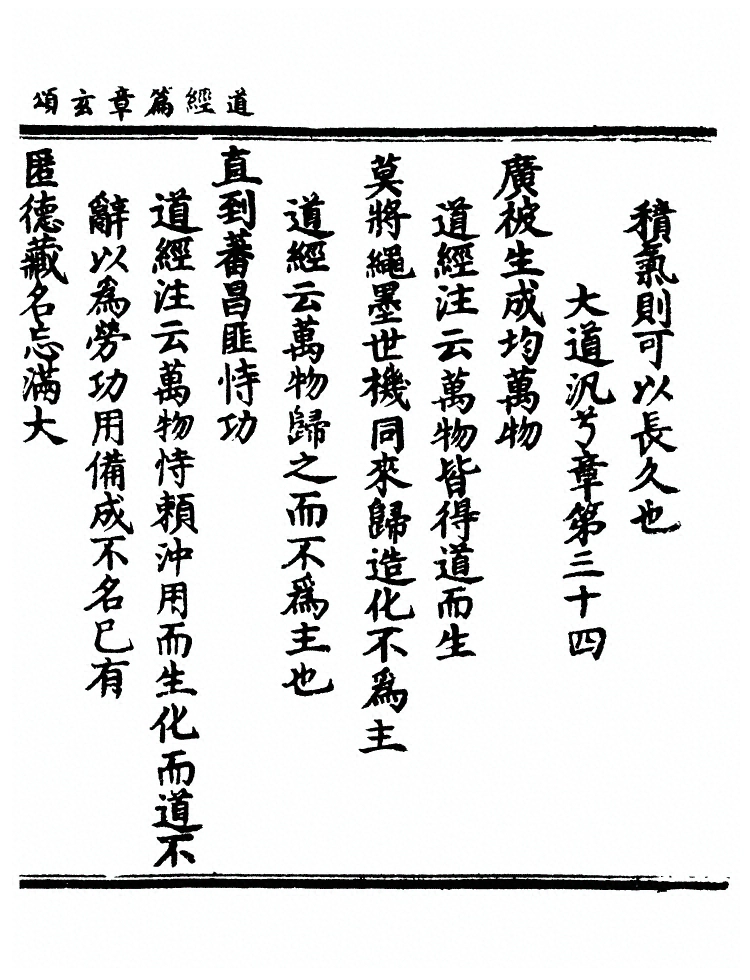 道經篇章玄頌
積氣則可以長久也
大道汎兮章第三十四
廣被生成均萬物
道經注云萬物皆得道而生
莫將繩墨世機同來歸造化不爲主
道經云萬物歸之而不爲主也
直到蕃昌匪恃功
道經注云萬物恃賴沖用而生化而道不
辭以爲勞功用備成不名已有
匿德藏名忘滿大